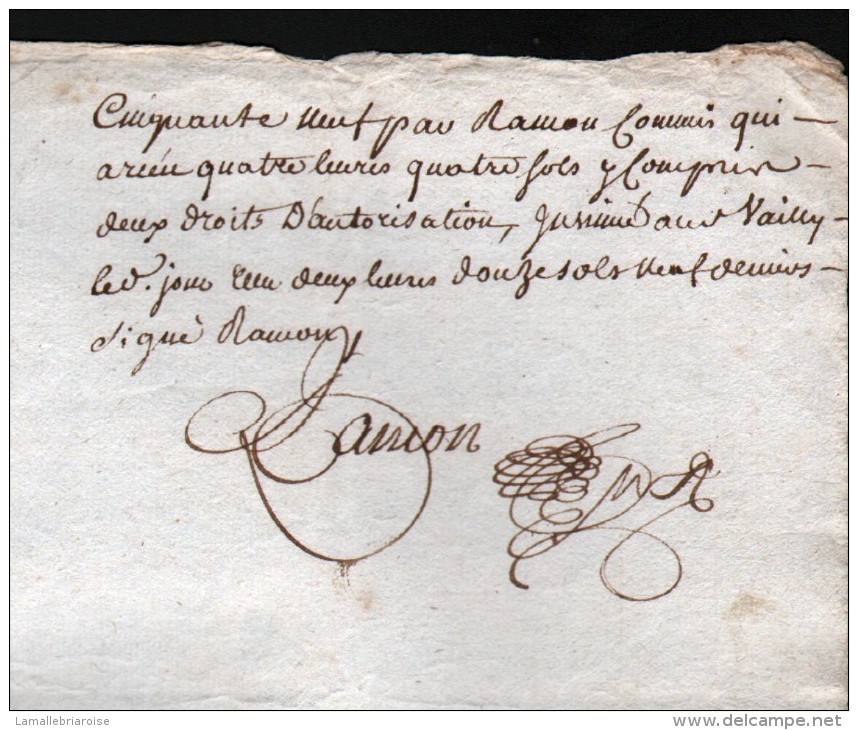 Cinquante neuf par Ramon Commis qui
a reçu quatre livres quatre sols y Compris
deux droits D'autorisation, Insinué aud Vailly
led. jour reçu deux livres douze sols neuf deniers
signé Ramon
Ramon
Lamallebriaroise
www.delcampe.net